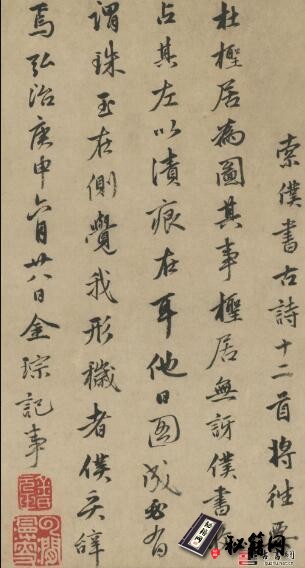 索僕書古詩十二首將往要
杜檉居為圖其事檉居無訝僕書
占其左以漬痕在耳他日圖成必有
謂珠玉在側覺我形穢者僕奚辭
焉弘治庚申六月廿八日金琮記事
秘籍网